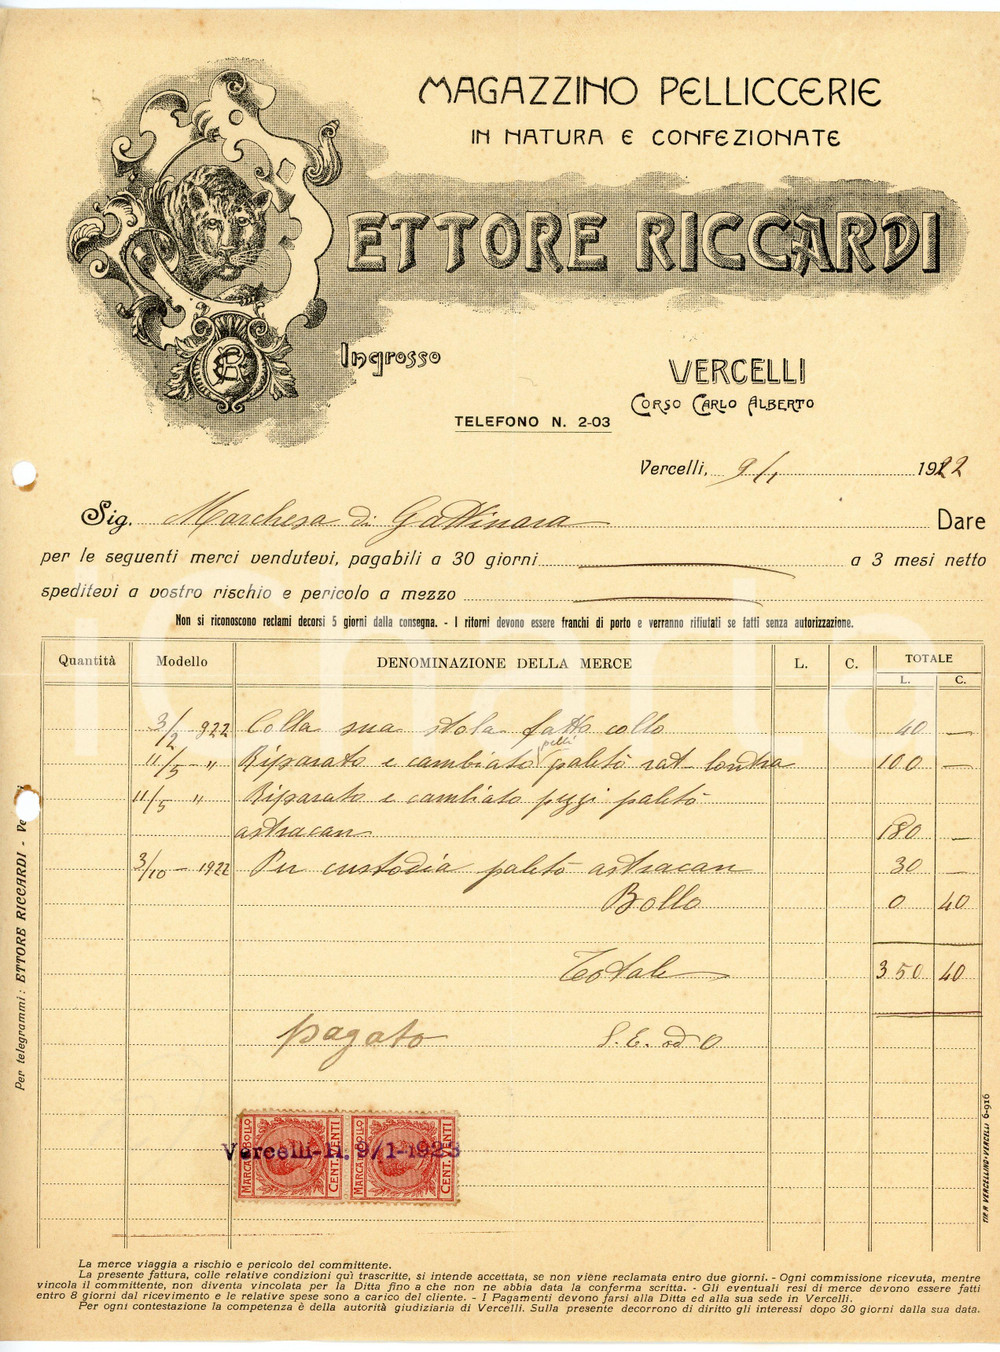 MAGAZZINO PELLICCERIE
IN NATURA E CONFEZIONATE
ETTORE RICCARDI
Ingrosso
VERCELLI
CORSO CARLO ALBERTO
TELEFONO N. 2-03
Vercelli, 9/1 1922
Sig. Marchesa di Gattinara Dare
per le seguenti merci vendutevi, pagabili a 30 giorni a 3 mesi netto
speditevi a vostro rischio e pericolo a mezzo
Non si riconoscono reclami decorsi 5 giorni dalla consegna. - I ritorni devono essere franchi di porto e verranno rifiutati se fatti senza autorizzazione.
Quantità Modello DENOMINAZIONE DELLA MERCE L. C. TOTALE
L. C.
3/2 922 Colla sua stola fatto collo 40 —
pelli
11/5 " Riparato e cambiato paletò rat-londra 100 —
11/5 " Riparato e cambiato pezzi paletò
astracan 180 —
3/10 - 1922 Per custodia paletò astracan 30 —
Bollo 0 40
Totale 350 40
pagato S. E. ed O
MARCA DA BOLLO CENT. VENTI MARCA DA BOLLO CENT. VENTI
Vercelli-li. 9/1-1923
Per telegrammi: ETTORE RICCARDI - Ve
TIP. A VERCELLINO-VERCELLI 6-916
La merce viaggia a rischio e pericolo del committente.
La presente fattura, colle relative condizioni quì trascritte, si intende accettata, se non viene reclamata entro due giorni. - Ogni commissione ricevuta, mentre
vincola il committente, non diventa vincolata per la Ditta fino a che non ne abbia data la conferma scritta. - Gli eventuali resi di merce devono essere fatti
entro 8 giorni dal ricevimento e le relative spese sono a carico del cliente. - I Pagamenti devono farsi alla Ditta ed alla sua sede in Vercelli.
Per ogni contestazione la competenza è della autorità giudiziaria di Vercelli. Sulla presente decorrono di diritto gli interessi dopo 30 giorni dalla sua data.
iCharta